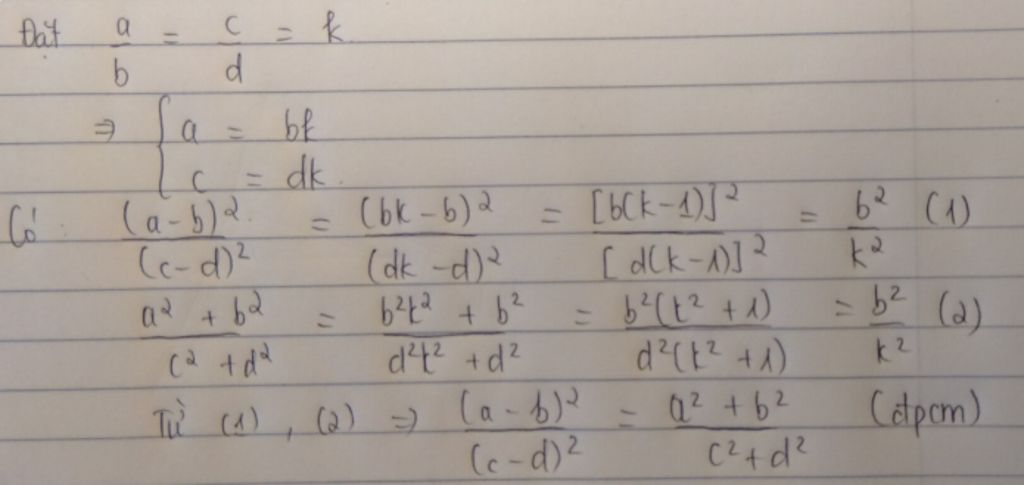 Đặt a/b = c/d = k
⇒ { a = bk
c = dk.
Có: (a-b)²/(c-d)² = (bk-b)²/(dk-d)² = [b(k-1)]²/[d(k-1)]² = b²/k² (1)
a² + b²/c² + d² = b²k² + b²/d²k² + d² = b²(k² + 1)/d²(k² + 1) = b²/k² (2)
Từ (1), (2) ⇒ (a-b)²/(c-d)² = a² + b²/c² + d² (đpcm)